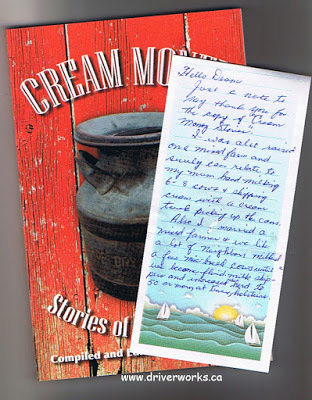 CREAM MONEY
Stories of
Compiled and Ed
Hello Deana
Just a note to
say thank you for
the copy of "Cream
Money Stories".
I was also raised
on a mixed farm and
surely can relate to
my mum hand milking
6-8 cows & shipping
cream with a cream
truck picking up the cans.
Also I married a
mixed farmer & we like
a lot of neighbors milked
a few
cows until
we became fluid milk ship-
pers and increased herd to
50 or more at times, holsteins
www.driverworks.ca